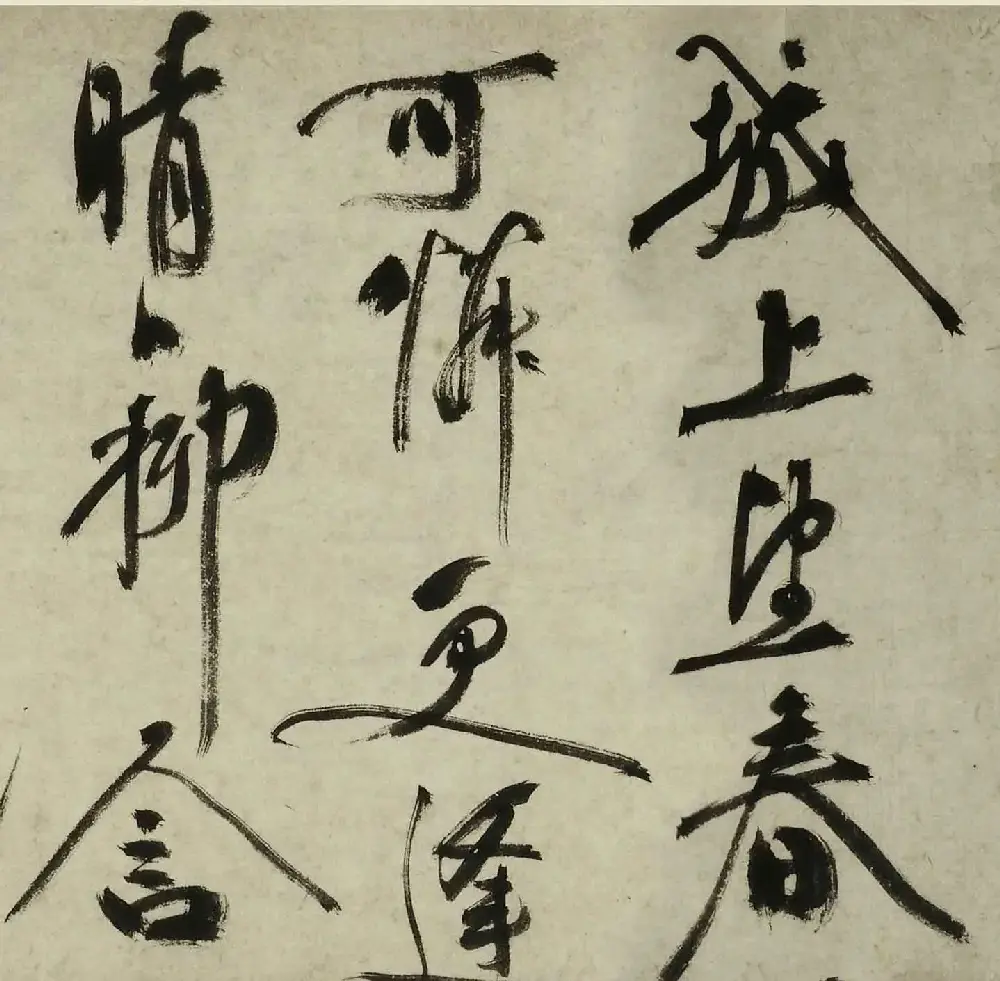 城上望春
可憐更逢
晴柳含